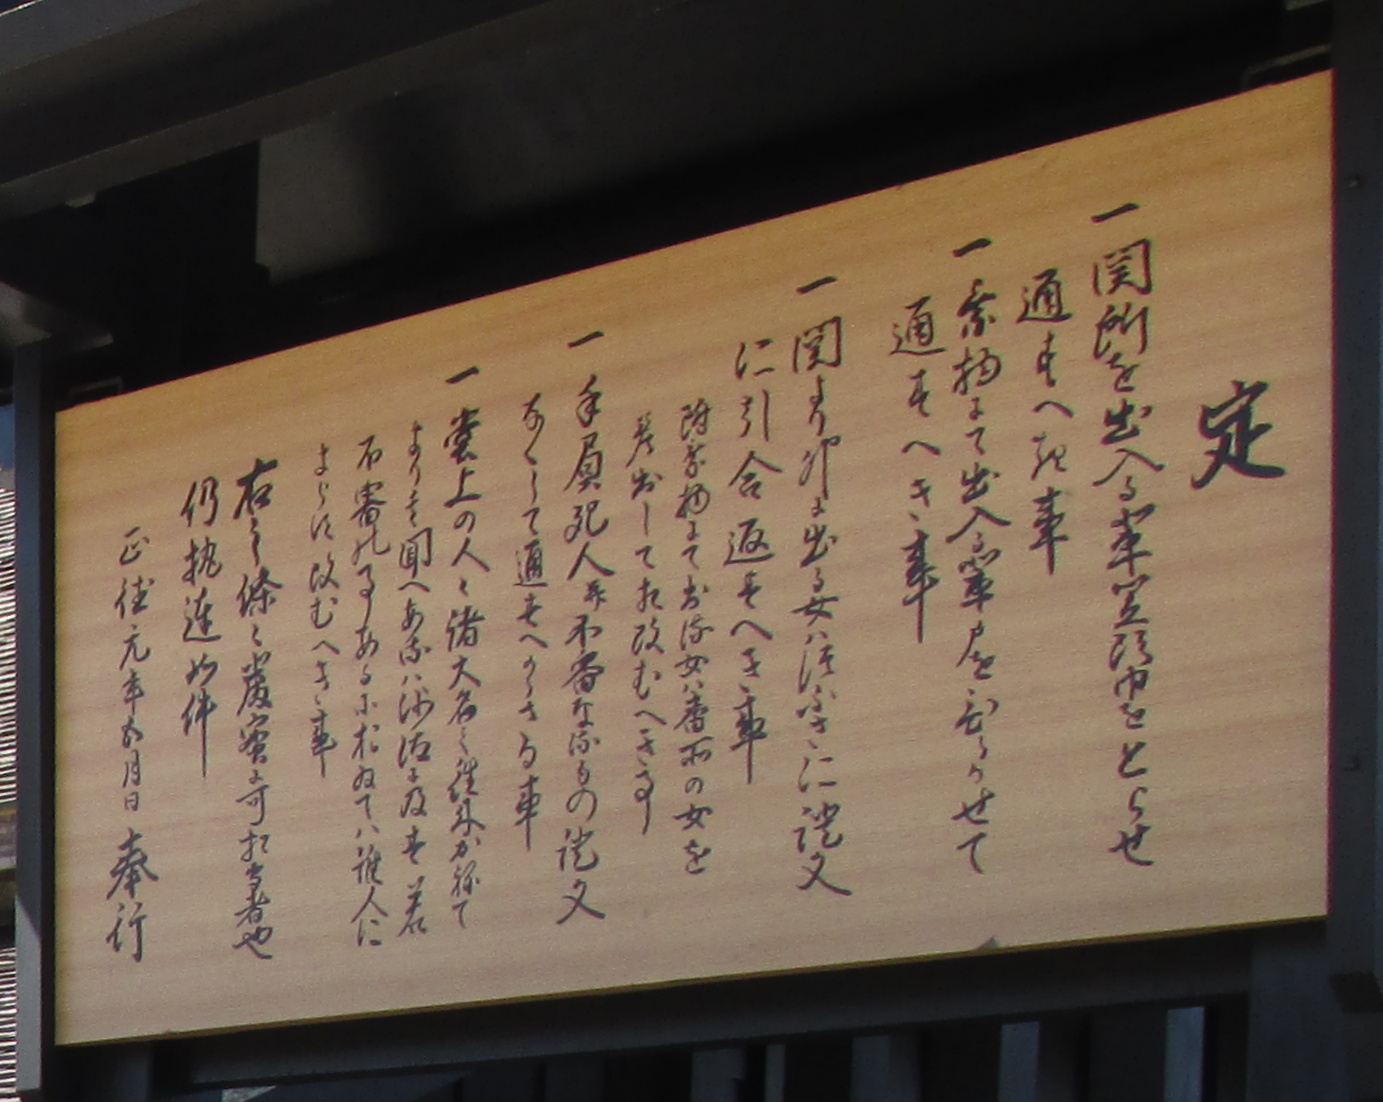 定
一 関所を出入る輩笠頭巾をとらせ
通すへき事
一 乗物にて出入る輩戸をひらかせて
通すへき事
一 関より外に出る女ハつふさに証文
に引合返すへき事
附乗物にて出る女ハ番所の女を
差出して相改むへき事
一 手負死人并不審なるもの証文
なくして通すへからさる事
一 堂上の人々諸大名之往来かねて
より其聞へあるハ沙汰に及す若
不審の事あるにおゐてハ誰人に
よらす改むへき事
右之條々厳密に可相守者也
仍執達如件
正徳元年五月日 奉行